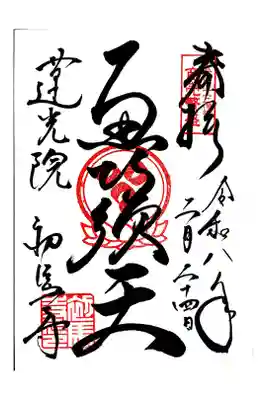 奉拝
令和八年
二月二十四日
恵比須天
蓮光院
初馬寺